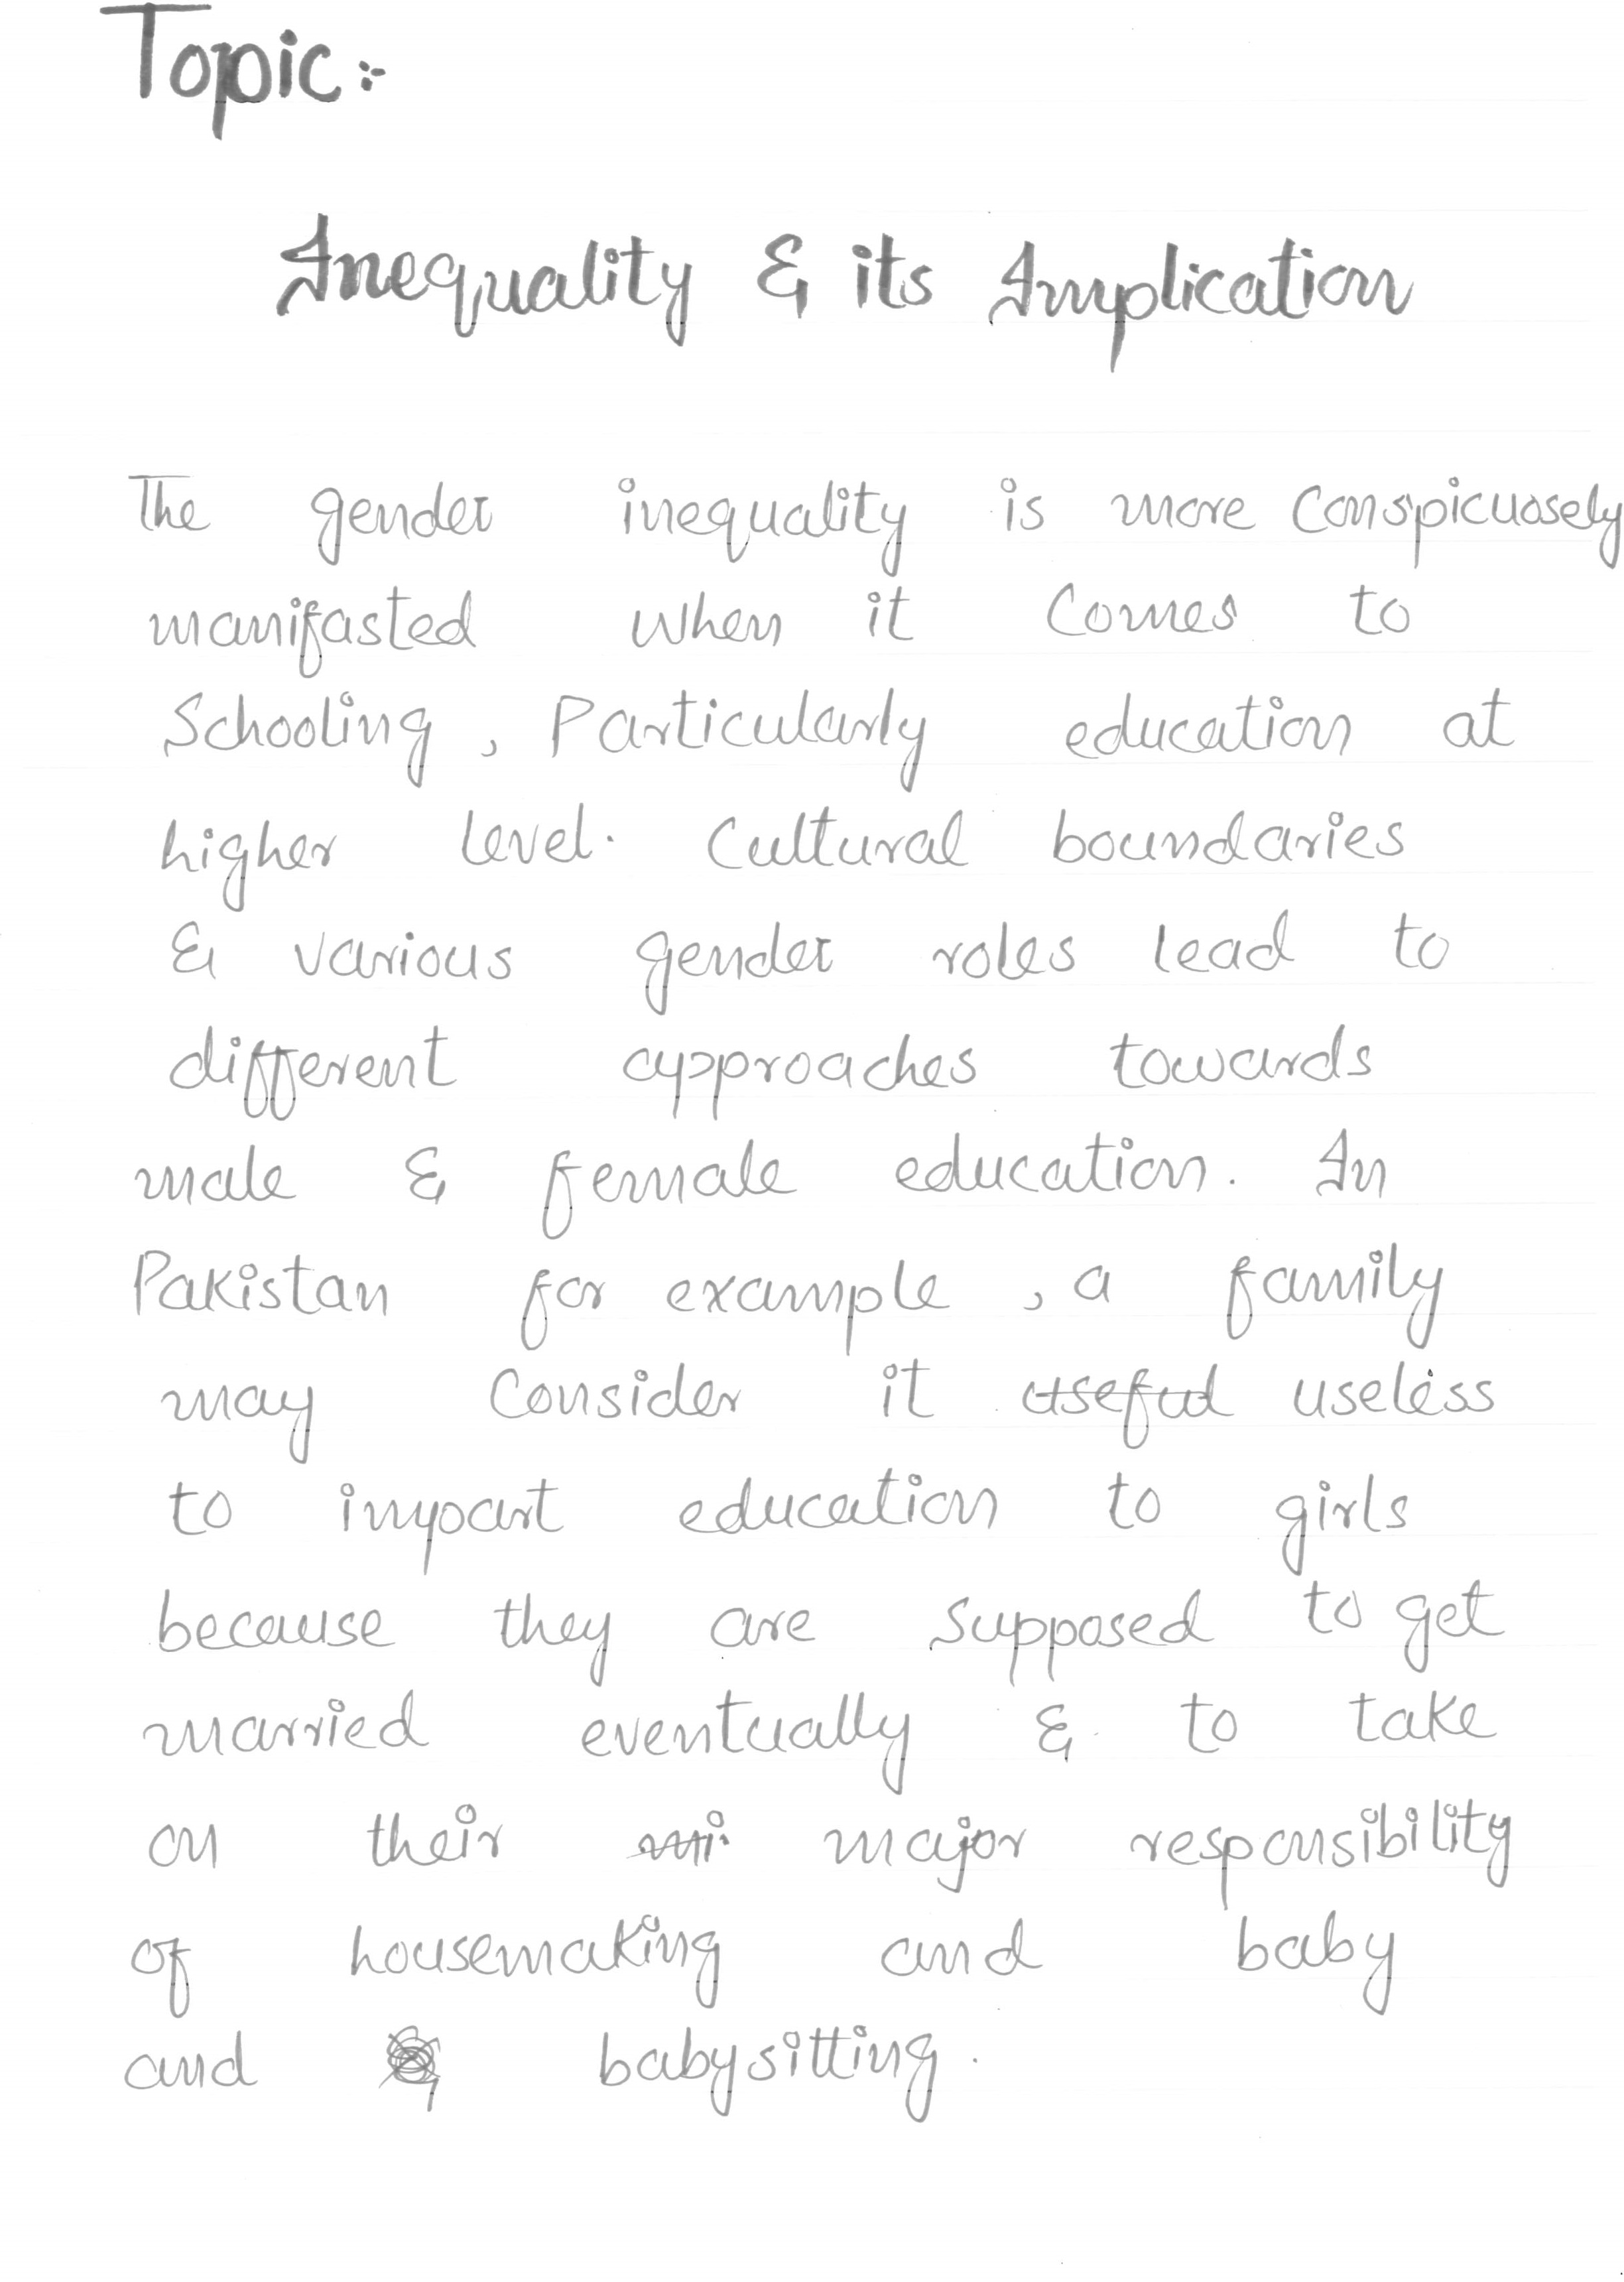 Topic:-
Inequality & its Implication
The gender inequality is more Conspicuosely
manifasted when it Comes to
Schooling, Particularly education at
higher level. Cultural boundaries
& various gender roles lead to
different approaches towards
male & female education. In
Pakistan for example, a family
may Consider it useful useless
to impart education to girls
because they are supposed to get
married eventually & to take
on their major responsibility
of housemaking and baby
and babysitting.